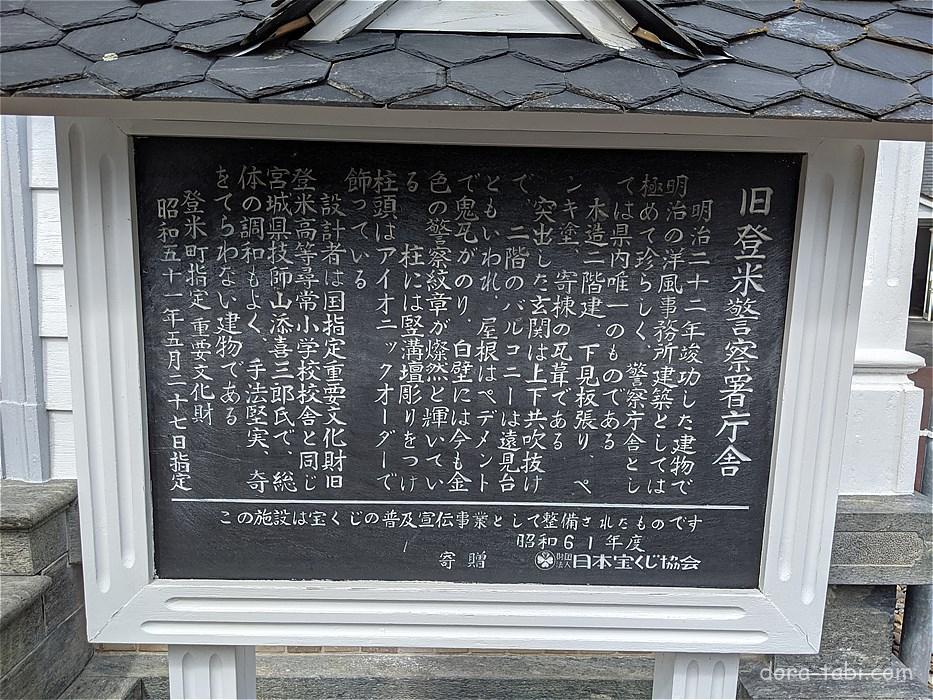 旧登米警察署庁舎
明治二十二年竣功した建物で
明治の洋風事務所建築としては
極めて珍らしく、警察庁舎とし
ては県内唯一のものである
木造二階建、下見板張り、ペ
ンキ塗、寄棟の瓦葺である
突出した玄関は上下共吹抜け
で、二階のバルコニーは遠見台
ともいわれ、屋根はペデメント
で鬼瓦がのり、白壁には今も金
色の警察紋章が燦然と輝いてい
る 柱には竪溝壇彫りをつけ
柱頭はアイオニックオーダーで
飾っている
設計者は国指定重要文化財旧
登米高等尋常小学校校舎と同じ
宮城県技師山添喜三郎氏で、総
体の調和もよく、手法堅実、奇
をてらわない建物である
登米町指定 重要文化財
昭和五十一年五月二十七日指定
この施設は宝くじの普及宣伝事業として整備されたものです
昭和61年度
寄贈 財団法人 日本宝くじ協会
dora-tabi.com